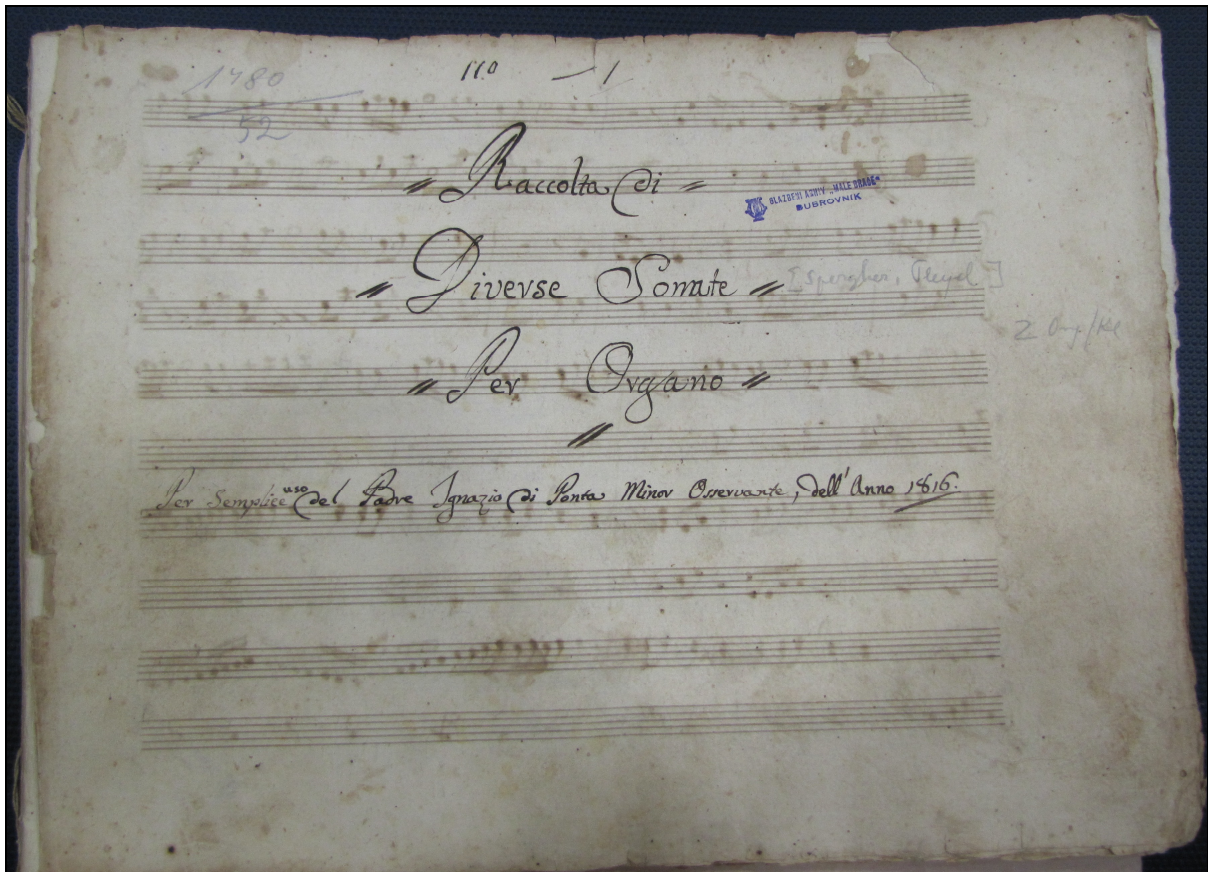 1780
52
11.0 — 1
= Raccolta di =
GLAZBENI ARHIV „MALE BRAĆE“
DUBROVNIK
= Diverse Sonate =
[Spergher, Pleyel]
= Per Organo =
Per Semplice uso del Padre Ignazio di Ponta Minor Osservante, dell' Anno 1816.